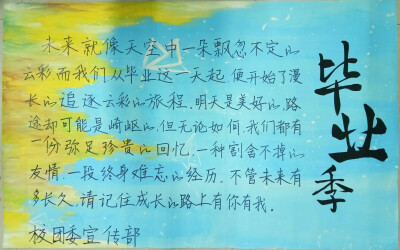 未来就像天空中一朵飘忽不定的
云彩而我们从毕业这一天起 便开始了漫
长的追逐云彩的旅程.明天是美好的.路
途却可能是崎岖的.但无论如何.我们都有
一份弥足珍贵的回忆.一种割舍不掉的
友情.一段终身难忘的经历.不管未来有
多长久.请记住成长的路上有你有我。
校团委宣传部
毕业季